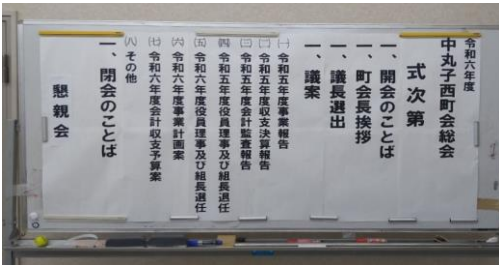 令和六年度
中丸子西町会総会
式次第
一、開会のことば
一、町会長挨拶
一、議長選出
一、議案
㈠ 令和五年度事業報告
㈡ 令和五年度収支決算報告
㈢ 令和五年度会計監査報告
㈣ 令和五年度役員理事及び組長退任
㈤ 令和六年度役員理事及び組長選任
㈥ 令和六年度事業計画案
㈦ 令和六年度会計収支予算案
㈧ その他
一、閉会のことば
懇親会